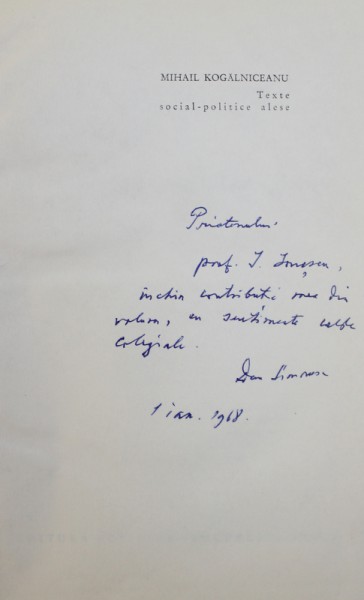 MIHAIL KOGĂLNICEANU
Texte
social-politice alese
Prietenului
prof. I. Ionașcu,
închin contribuția mea din
volum, cu sentimente calde
colegiale.
Dan Simonescu
1 ian. 1968.